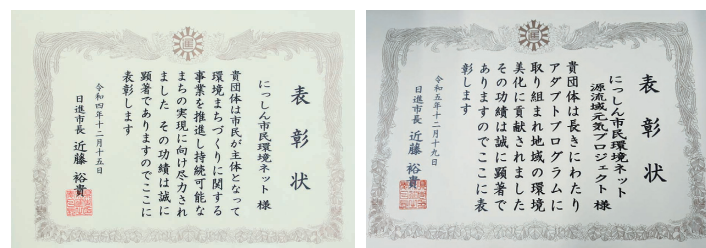 表彰状
にっしん市民環境ネット 様
貴団体は市民が主体となって
環境まちづくりに関する
事業を推進し持続可能な
まちの実現に向け尽力され
ました その功績は誠に
顕著でありますのでここに
表彰します
令和四年十二月十五日
日進市長 近藤 裕貴
表彰状
にっしん市民環境ネット
源流域元気プロジェクト 様
貴団体は長きにわたり
アダプトプログラムに
取り組まれ地域の環境
美化に貢献されました
その功績は誠に顕著で
ありますのでここに表
彰します
令和五年十二月十九日
日進市長 近藤 裕貴